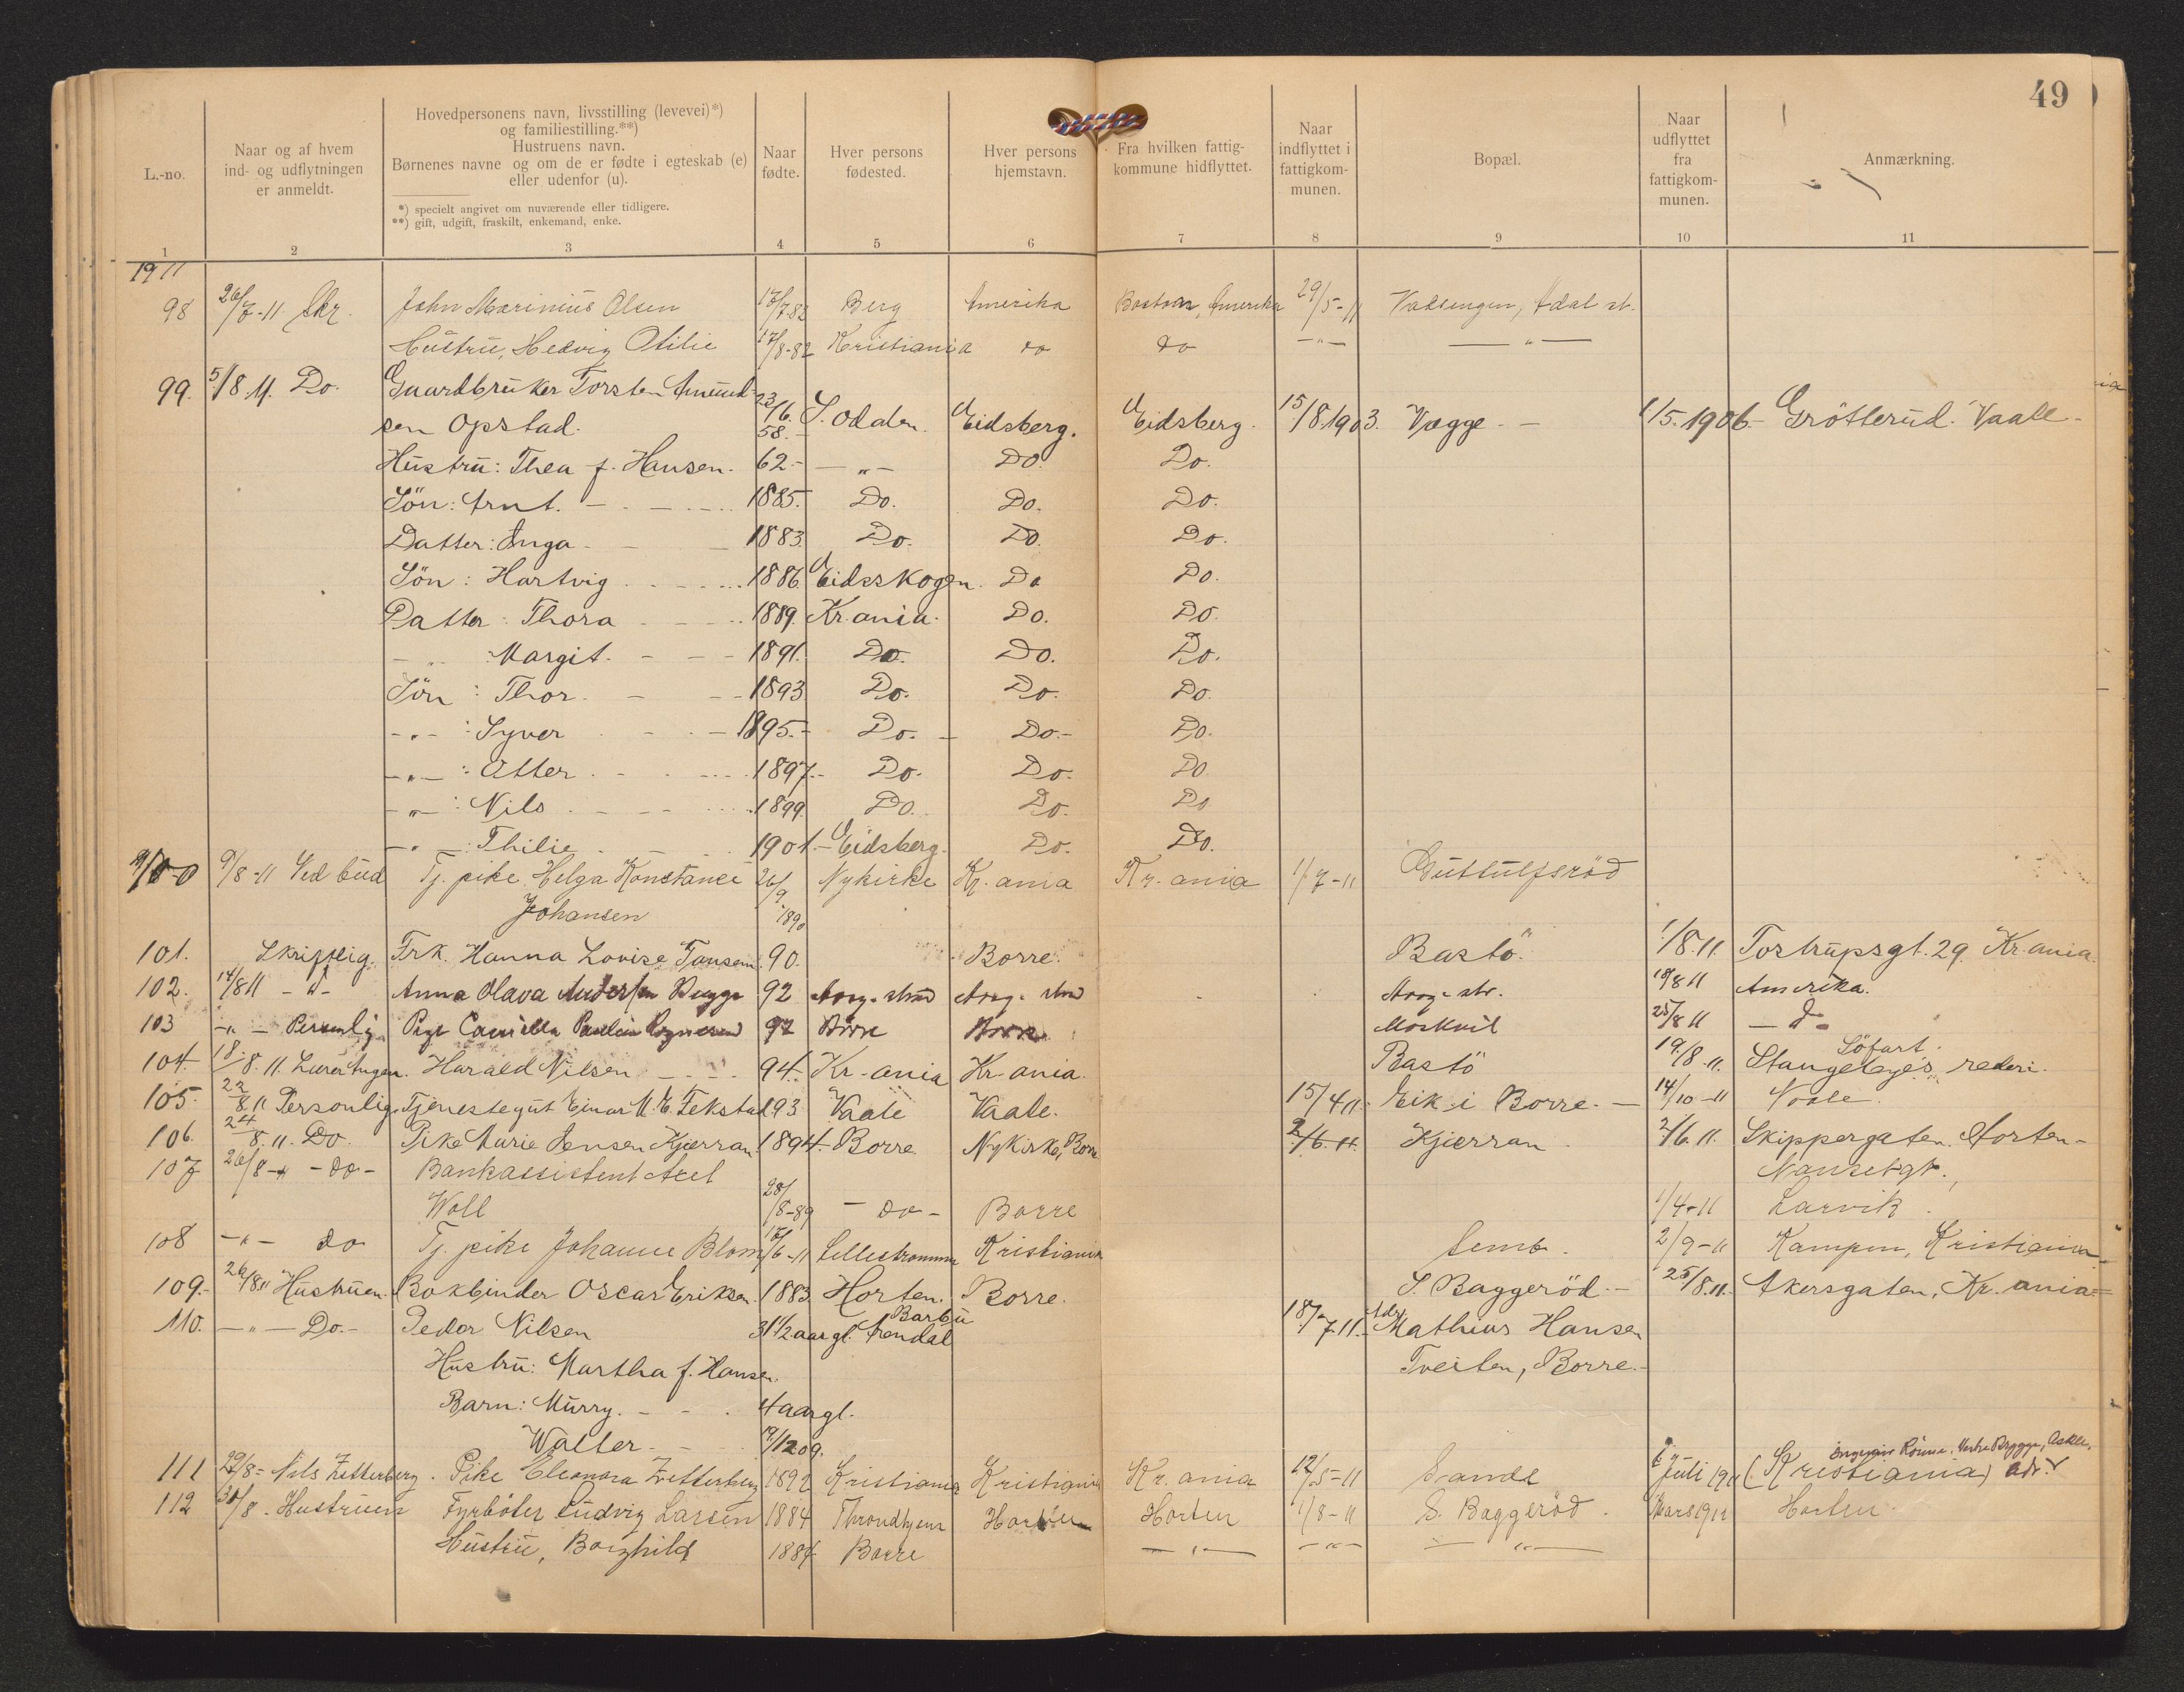 49
L.-no.
Naar og af hvem
ind- og udflytningen
er anmeldt.
Hovedpersonens navn, livsstilling (levevei)*)
og familiestilling.**)
Hustruens navn.
Børnenes navne og om de er fødte i egteskab (e)
eller udenfor (u).
*) specielt angivet om nuværende eller tidligere.
**) gift, udgift, fraskilt, enkemand, enke.
Naar
fødte.
Hver persons
fødested.
Hver persons
hjemstavn.
Fra hvilken fattig-
kommune hidflyttet.
Naar
indflyttet i
fattigkom-
munen.
Bopæl.
Naar
udflyttet
fra
fattigkom-
munen.
Anmærkning.
1 2 3 4 5 6 7 8 9 10 11
1911
98 26/7-11 Skr. John Marinius Olsen 17/7-82 Berg Amerika Boston, Amerika 29/5-11
Hustru, Hedvig Otilie 17/8-82 Kristiania do do -"- -"-
99. 5/8 11. Do. Gaardbruker Torsten Amund-
sen Opstad. 23/6. 58.- S. Odalen. Eidsberg. Eidsberg. 15/8 1903. Vægge - 1/5. 1906- Grötterud. Vaale-
Hustru: Thea f. Hansen. 62.- -"- Do. Do.
Sön: Arnt. 1885. Do. Do. Do.
Datter: Inga 1883. Do. Do. Do.
Sön: Hartvig 1886. Eidsskogen. Do Do.
Datter: Thora 1889. Kr.ania. Do. Do.
-"- : Margit. 1891. Do. Do. Do.
Sön: Thor. 1893. Do. Do. Do.
-"- : Syver 1895.- Do.- Do.- Do.
-"- : Otter 1897.- Do. Do. Do.
-"- : Nils 1899. Do. Do. Do
-"- : Thilie 1901.- Eidsberg. Do. Do.
100 9/8-11 Ved bud Tj. pike Helga Konstance 26/9 1890 Nykirke Kr. ania Kr. ania 1/7-11 Guttulfsröd
Johansen
101. Skriftlig. Frk. Hanna Lovise 90. Borre. Bastö. 1/8.11. Tostrupsgt. 29. Kr.ania.
102. 14/8 11 -"- Anna Olava Andersen Bugge 92 Aasg.strand Aasg. strand Aasg. str. 19/8 11 Amerika.
103 -"- Personlig Pige Camilla 92 Borre Borre 25/8 11 - d -
104. 18/8. 11. Harald Nilsen 94. Kr-ania Kr-ania. Bastö 19/8.11. Söfart.
rederi.
105. 22/8.11 Personlig Tjenestegut Einar M. E. Fekstad. 93 Vaale Vaale. 15/4 11. Eik i Borre.- 14/10-11 Vaale.
106. 24/8.11. Do. Pike Marie Jensen Kjærran. 1894. Borre. Nykirke, Borre 2/6.11. Kjærran 2/6.11. Skippergaten. Horten-
107 26/8-11 - do - Bankassistent Axel
Woll 28/8-89 - do - Borre 1/4-11 Nansetgt.,
Larvik.
108 -"- do Tj. pike Johanne Blom 17/6-11 Lillestrømmen Kristiania Semb. 2/9-11 Kampen, Kristiania
109.- 26/8 11 Hustruen. Bokbinder Oscar Eriksen. 1883. Horten. Borre. S. Baggeröd.- 25/8.11. Akersgaten, Kr. ania=
110. -"- Do.- Peder Nilsen 31 1/2 aargl. Barbu
Arendal 18/7.11.- Adr.
Mathias Hansen
Hustru: Martha f. Hansen. Tveiten, Borre.-
Barn: Murry. 4 aargl.
Walter. 19/12 09.
111 29/8- Nils Zetterberg. Pike Eleonora Zetterberg 1892 Kristiania Kristiania Kr. ania 12/5-11 Sande Juli 1911 (Kristiania) adr.
112 30/8. Hustruen Fyrböter Ludvig Larsen 1884 Throndhjem Horten Horten 1/8-11 S. Baggeröd. Mars 1912 Horten.
Hustru, Borghild 1884 Borre -"- -"- -"-